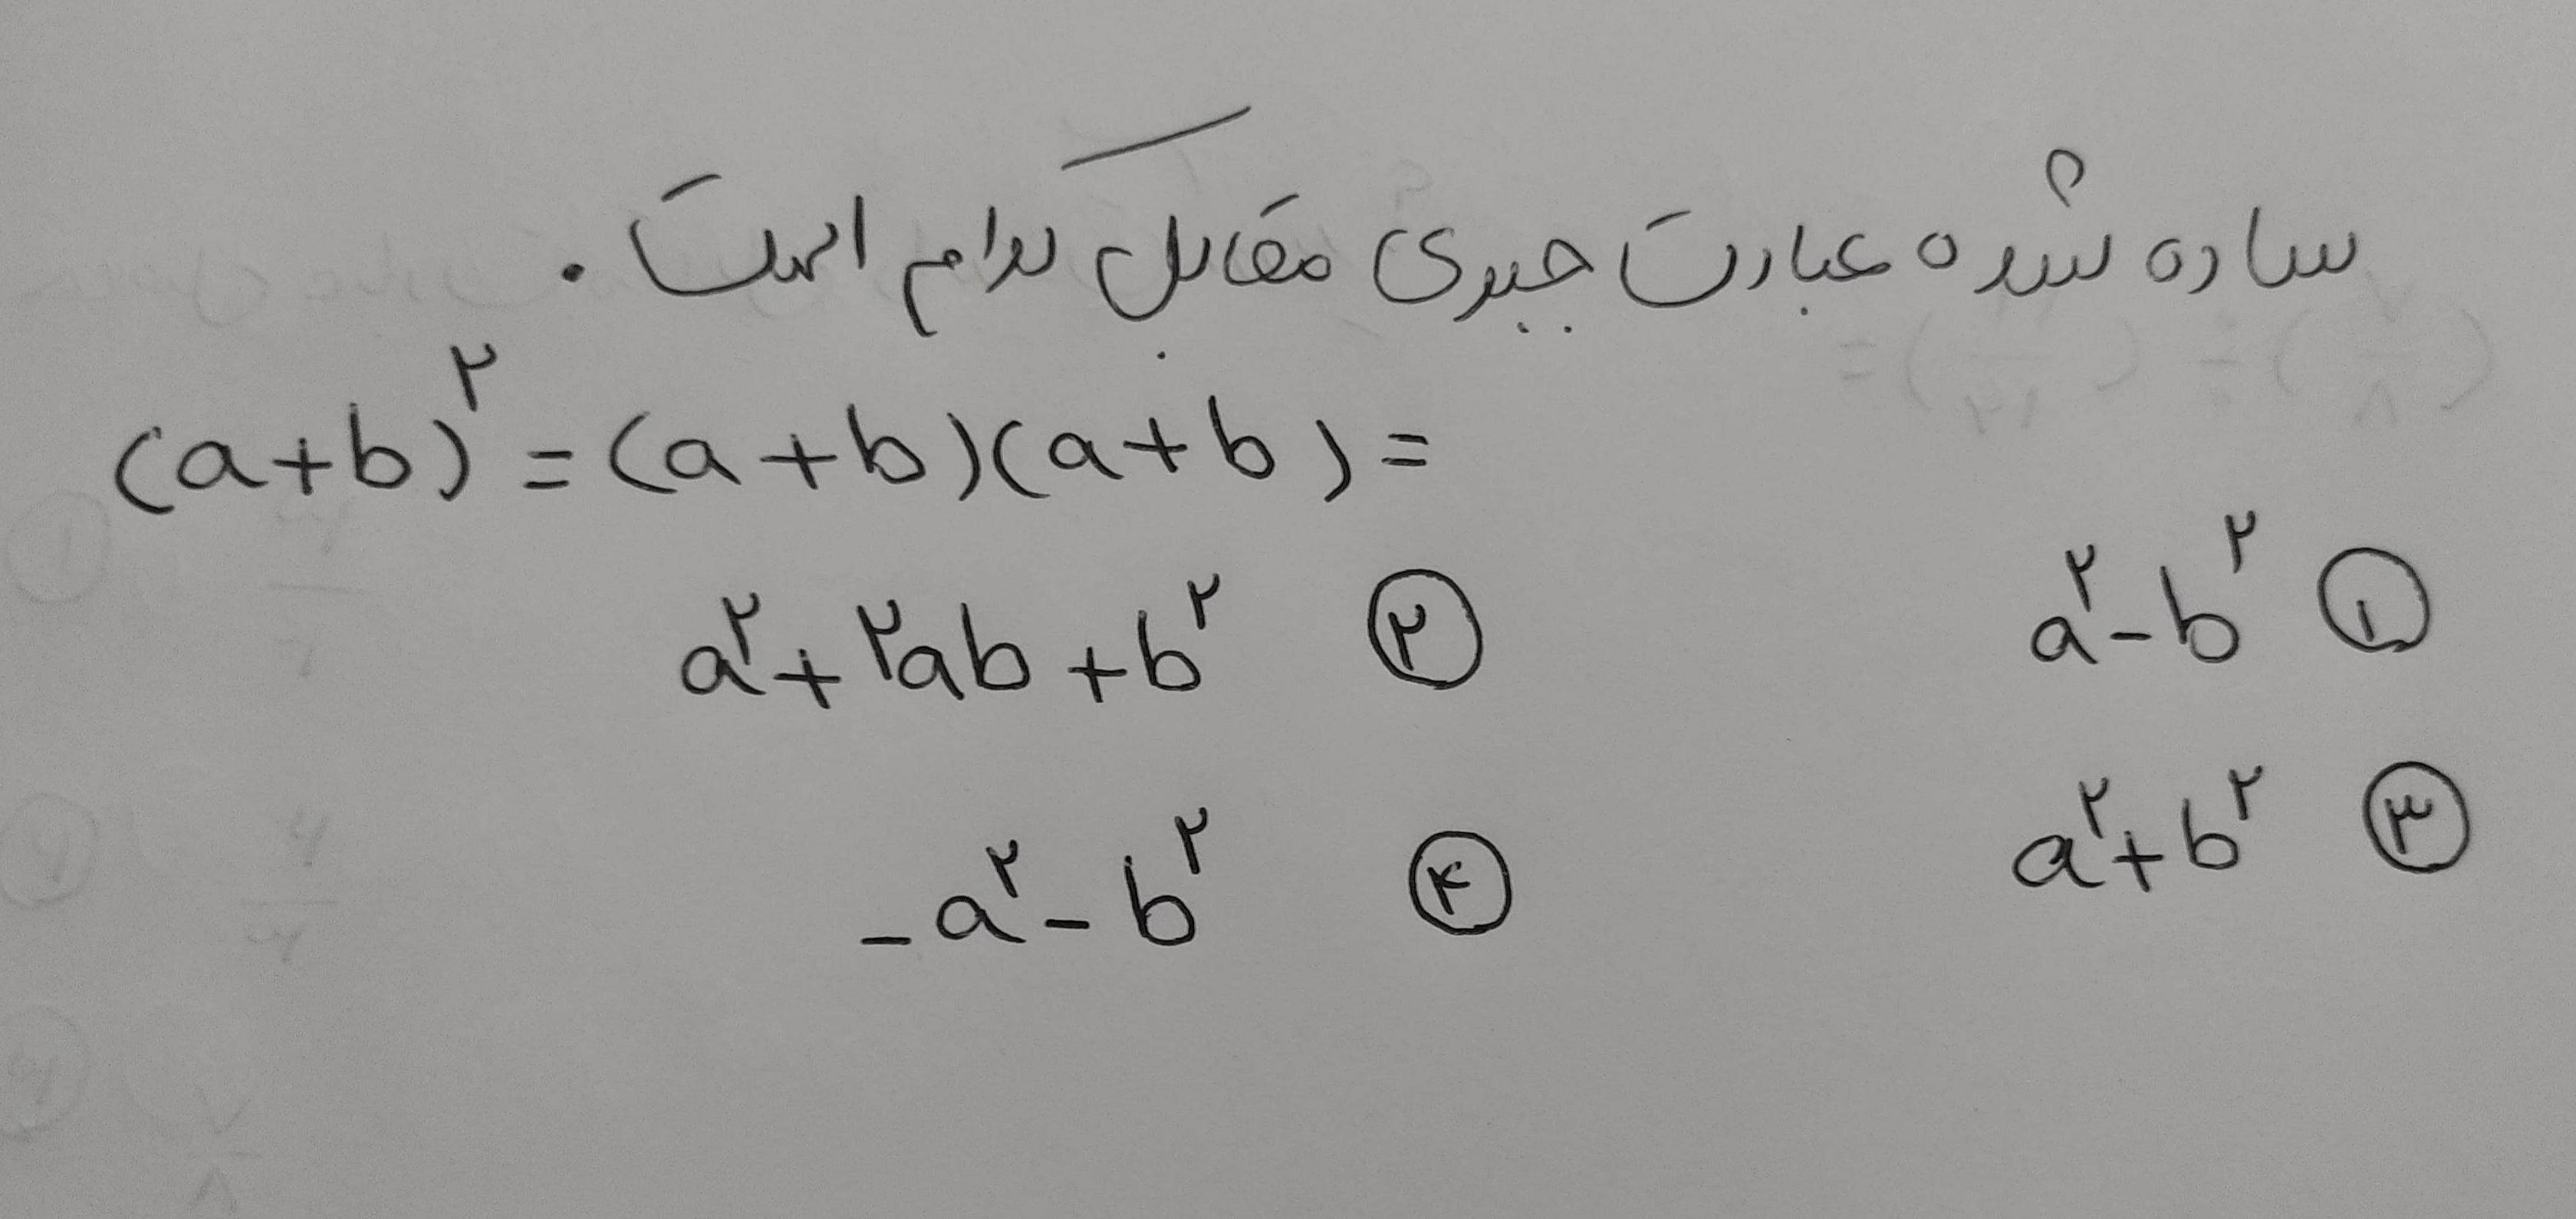 ساده شده عبارت جبری مقابل کدام است.
(a+b)^۲ = (a+b)(a+b) =
① a^۲-b^۲ ② a^۲+۲ab+b^۲
③ a^۲+b^۲ ④ -a^۲-b^۲